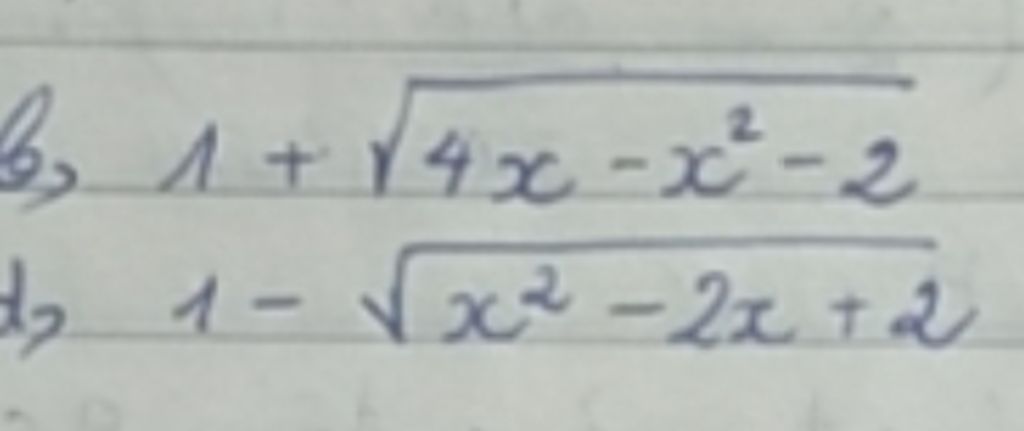 b, 1 + √(4x - x² - 2)
d, 1 - √(x² - 2x + 2)